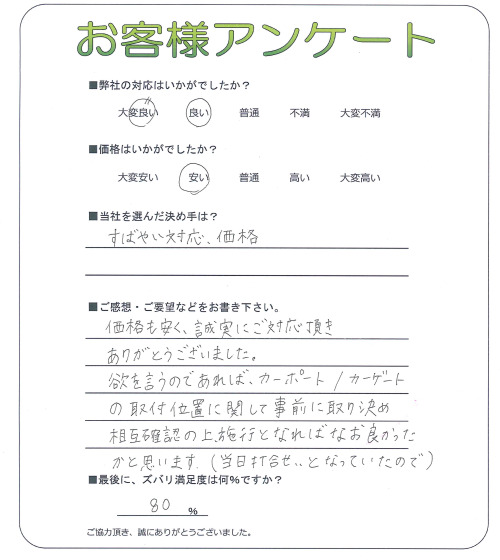 お客様アンケート
■弊社の対応はいかがでしたか？
大変良い 良い 普通 不満 大変不満
■価格はいかがでしたか？
大変安い 安い 普通 高い 大変高い
■当社を選んだ決め手は？
すばやい対応、価格
■ご感想・ご要望などをお書き下さい。
価格も安く、誠実にご対応頂き
ありがとうございました。
欲を言うのであれば、カーポート／カーゲート
の取付位置に関して事前に取り決め
相互確認の上施行となればなお良かった
かと思います。（当日打合せ、、となっていたので）
■最後に、ズバリ満足度は何%ですか？
80 %
ご協力頂き、誠にありがとうございました。